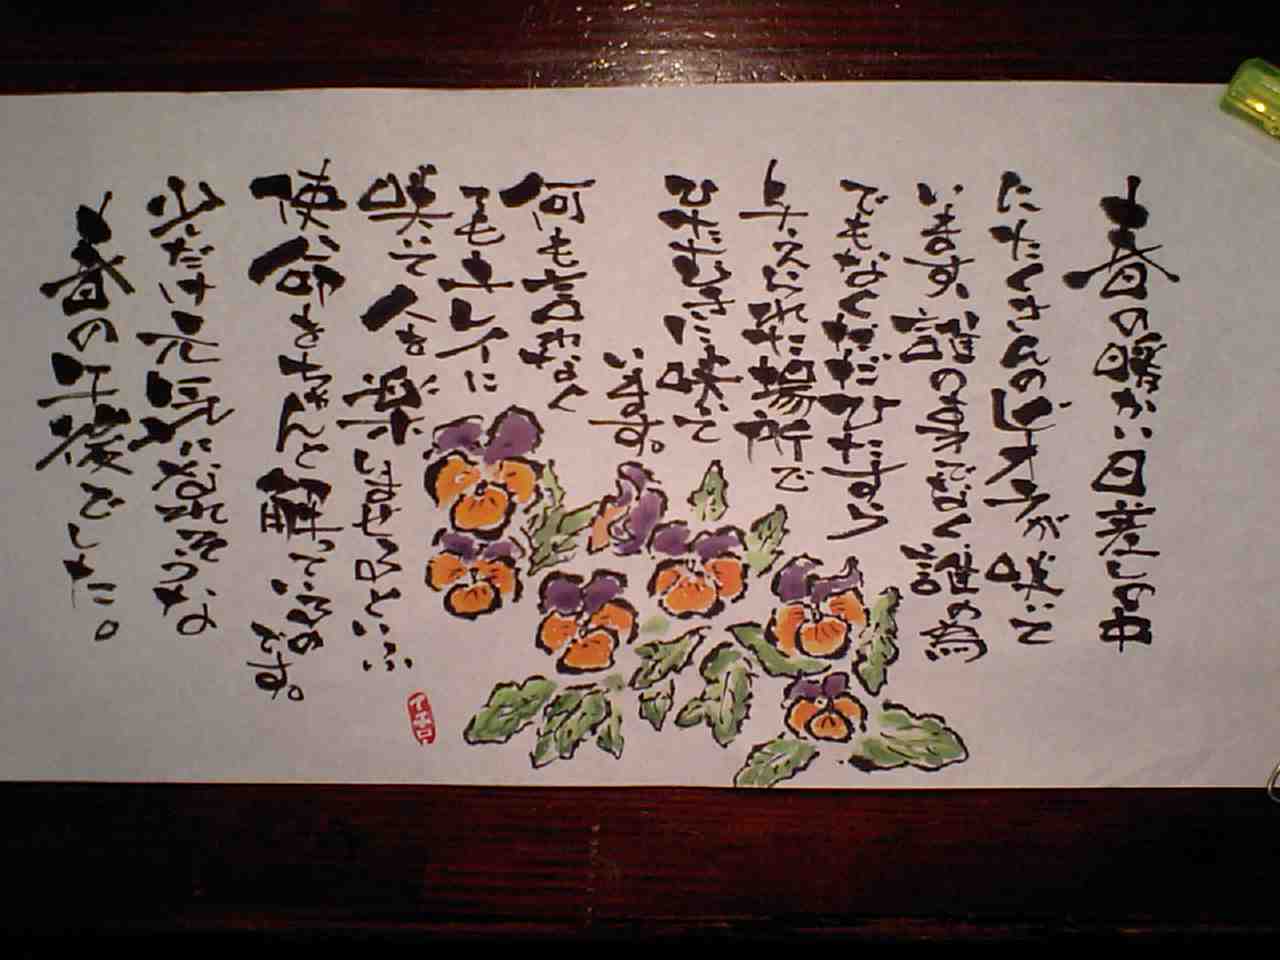 春の暖かい日差しの中
たたくさんのビオラが咲いて
います。誰の手でなく誰の為
でもなくただひたすら
与えられた場所で
ひたむきに咲いて
います。
何も言わなく
てもキレイに
咲いて人を楽しませるという
使命をちゃんと解っているの
です。
少だけ元気になれそうな
春の午後でした。